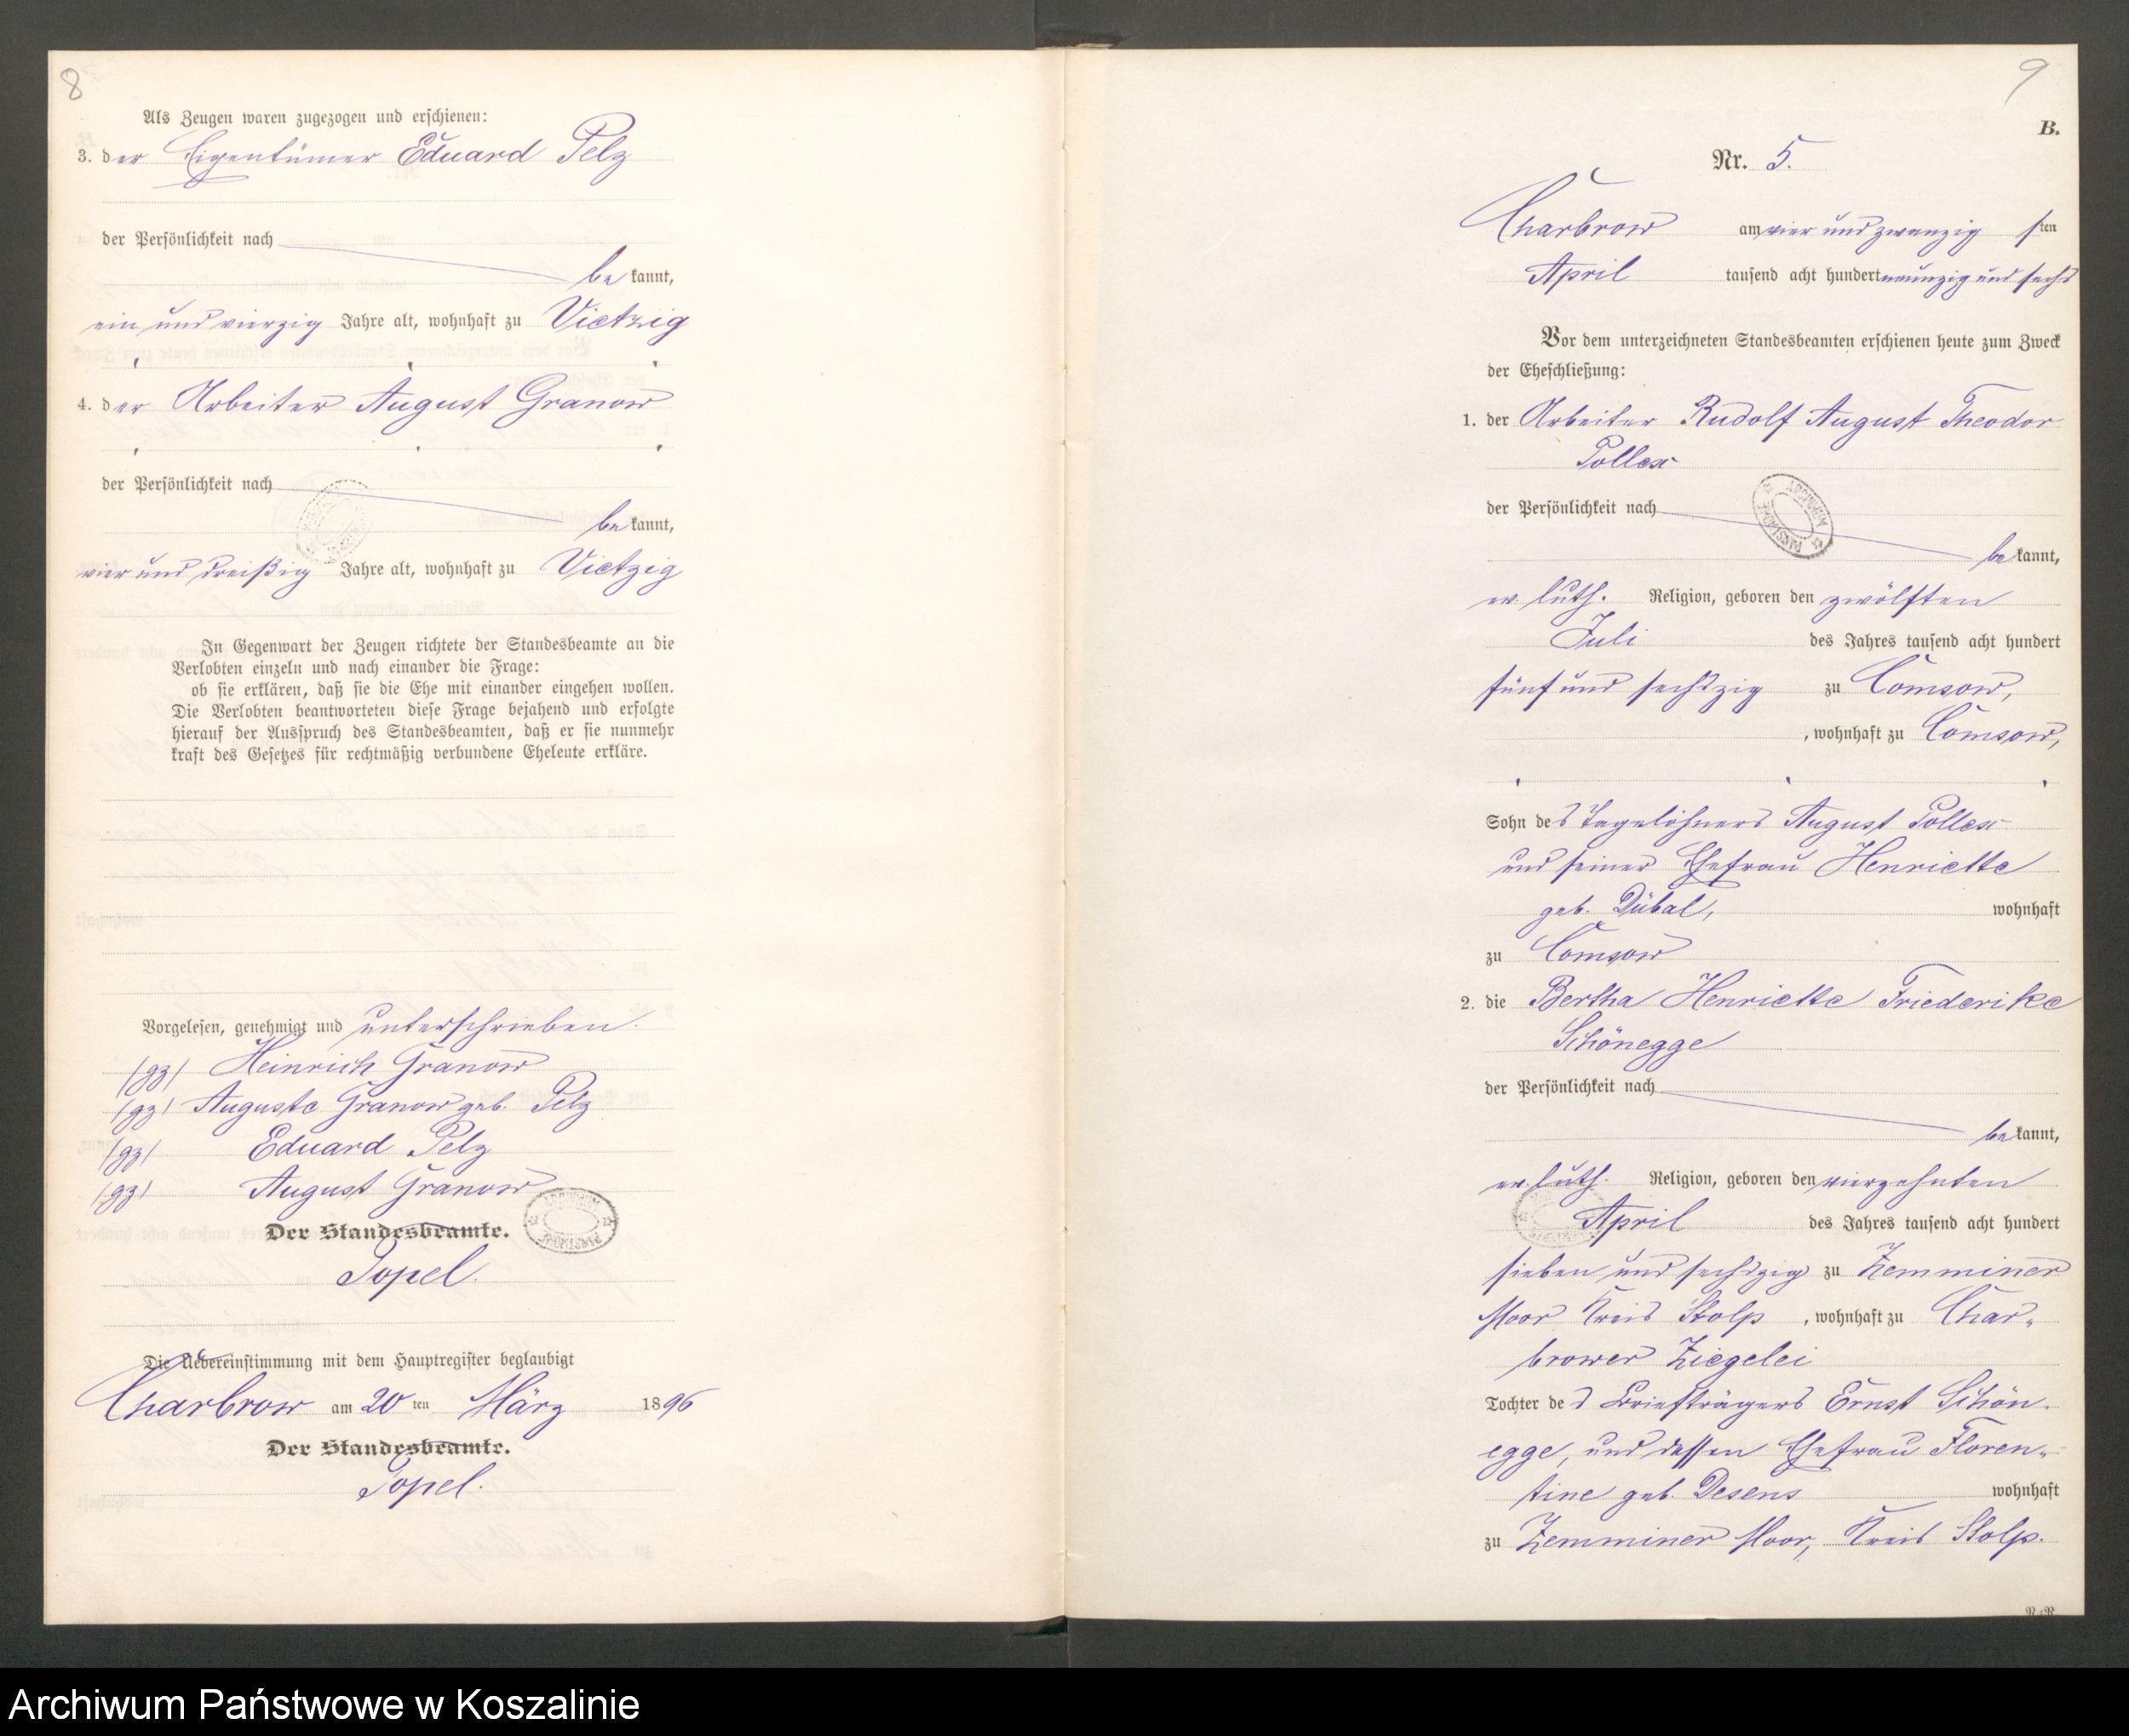 8
Als Zeugen waren zugezogen und erschienen:
3. der Eigentümer Eduard Pelz
der Persönlichkeit nach
be kannt,
ein und vierzig Jahre alt, wohnhaft zu Vietzig
4. der Arbeiter August Granow
der Persönlichkeit nach
be kannt,
vier und dreißig Jahre alt, wohnhaft zu Vietzig
In Gegenwart der Zeugen richtete der Standesbeamte an die
Verlobten einzeln und nach einander die Frage:
ob sie erklären, daß sie die Ehe mit einander eingehen wollen.
Die Verlobten beantworteten diese Frage bejahend und erfolgte
hierauf der Ausspruch des Standesbeamten, daß er sie nunmehr
kraft des Gesetzes für rechtmäßig verbundene Eheleute erkläre.
Vorgelesen, genehmigt und unterschrieben.
/gz/ Heinrich Granow
/gz/ Auguste Granow geb. Pelz
/gz/ Eduard Pelz
/gz/ August Granow
Der Standesbeamte.
Popel.
Die Uebereinstimmung mit dem Hauptregister beglaubigt
Charbrow am 20 ten März 1896
Der Standesbeamte.
Popel.
9
B.
Nr. 5.
Charbrow am vier und zwanzig sten
April tausend acht hundert neunzig und sechs
Vor dem unterzeichneten Standesbeamten erschienen heute zum Zweck
der Eheschließung:
1. der Arbeiter Rudolf August Theodor
Pollex
der Persönlichkeit nach
be kannt,
ev. luth. Religion, geboren den zwölften
Juli des Jahres tausend acht hundert
fünf und sechszig zu Comsow,
, wohnhaft zu Comsow,
Sohn des Tagelöhners August Pollex
und seiner Ehefrau Henriette
geb. Dübal, wohnhaft
zu Comsow
2. die Bertha Henriette Friederike
Schönegge
der Persönlichkeit nach
be kannt,
ev. luth. Religion, geboren den vierzehnten
April des Jahres tausend acht hundert
sieben und sechszig zu Zemminer
Moor Kreis Stolp, wohnhaft zu Char-
brower Ziegelei
Tochter des Briefträgers Ernst Schön-
egge, und dessen Ehefrau Floren-
tine geb. Desens wohnhaft
zu Zemminer Moor, Kreis Stolp.
Archiwum Państwowe w Koszalinie